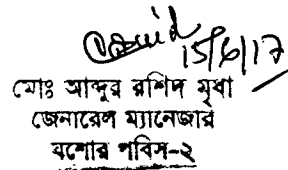 15/6/17
মোঃ আব্দুর রশিদ মৃধা
জেনারেল ম্যানেজার
যশোর পবিস-২